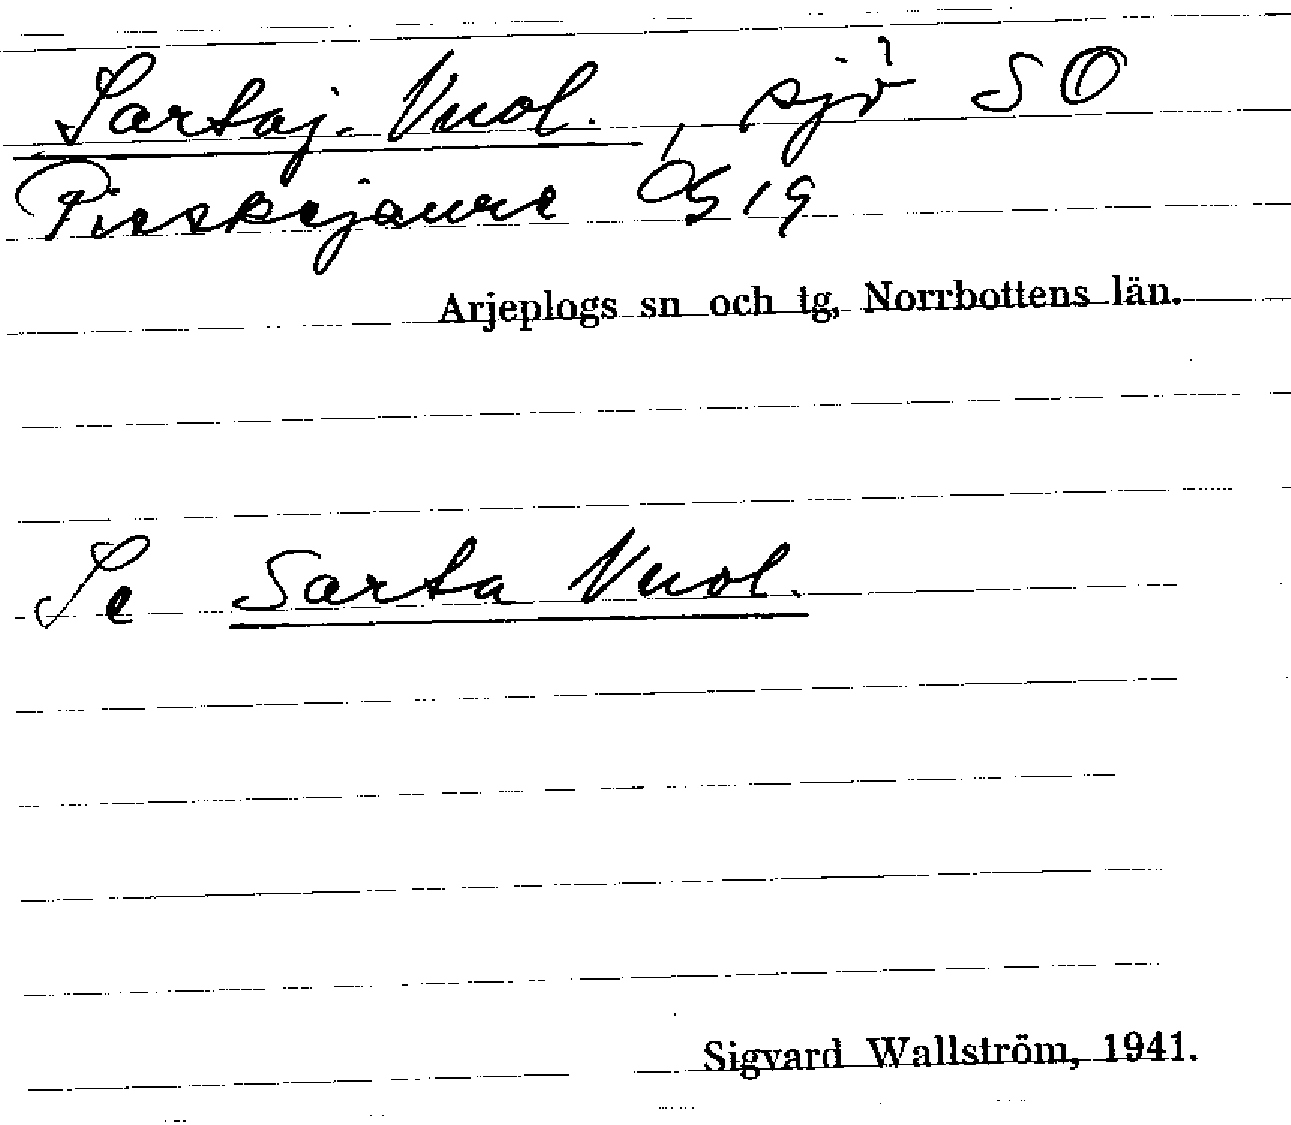 Sartaj-Vuol., sjö SO
Pieskejaure ÖG 19
Arjeplogs sn och tg, Norrbottens län.
Se Sarta Vuol.
Sigvard Wallström, 1941.